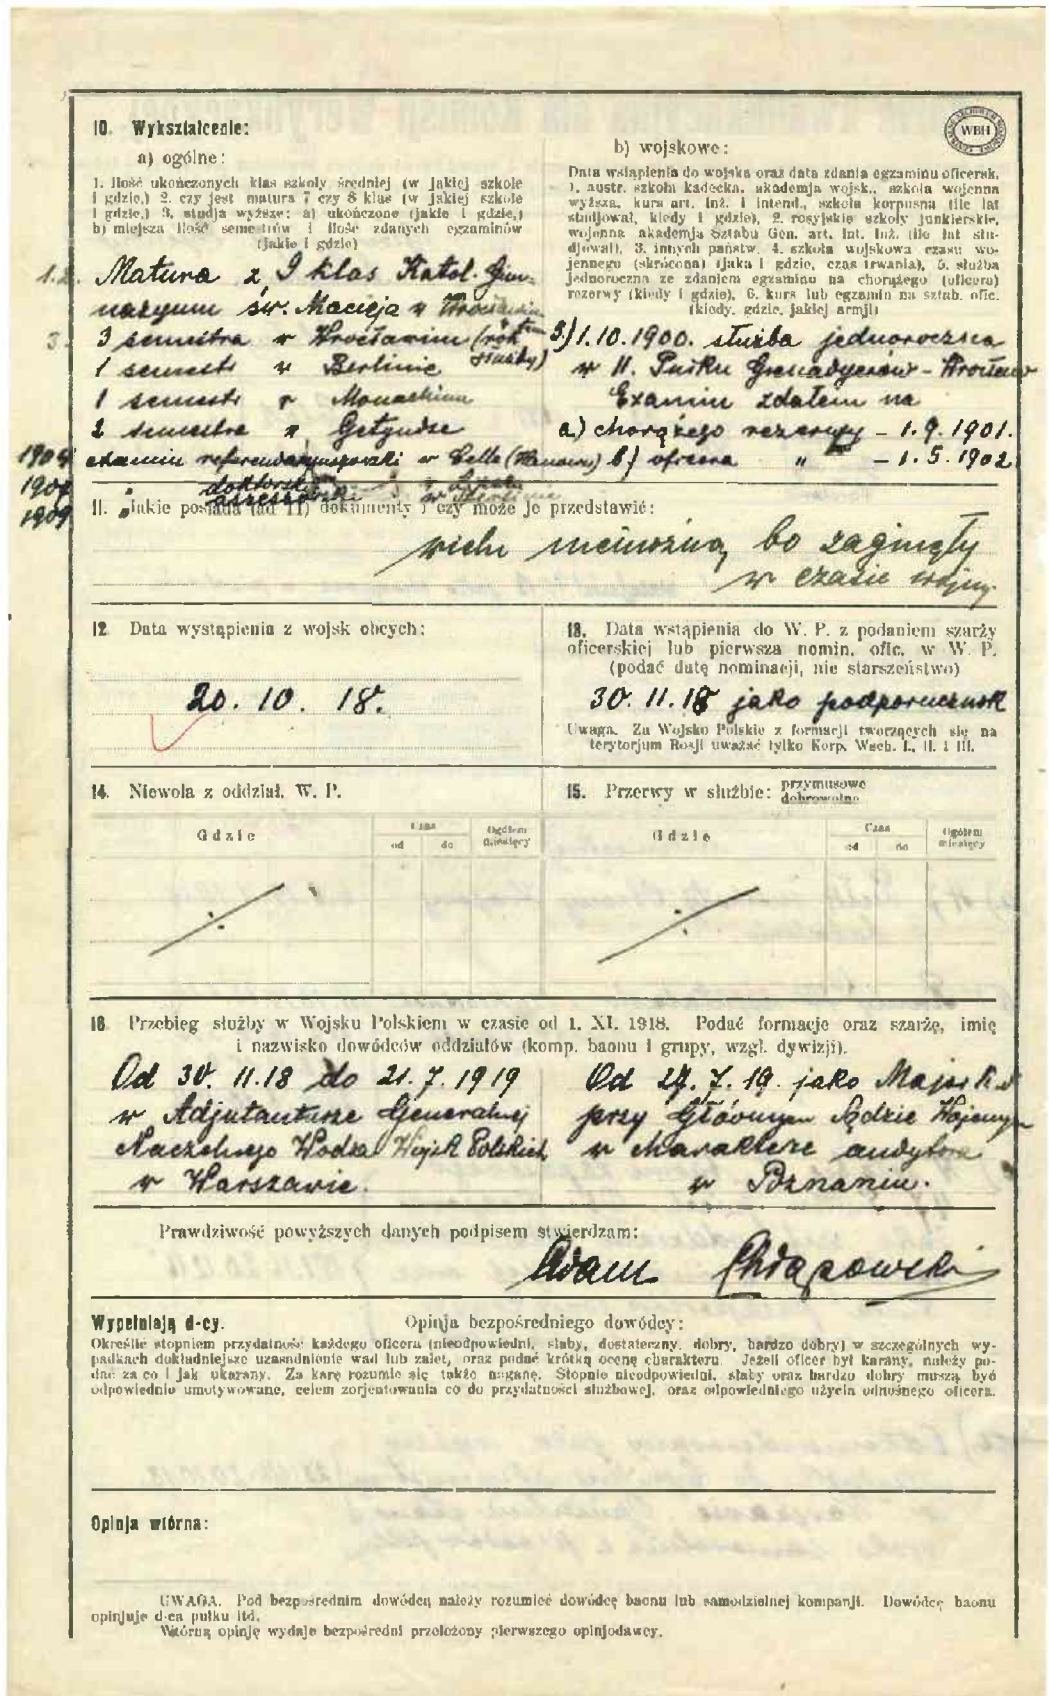 10. Wykształcenie:
a) ogólne:
1. Ilość ukończonych klas szkoły średniej (w jakiej szkole
i gdzie,) 2. czy jest matura 7 czy 8 klas (w jakiej szkole
i gdzie,) 3. studja wyższe: a) ukończone (jakie i gdzie,)
b) miejsza ilość semestrów i ilość zdanych egzaminów
(jakie i gdzie)
1.2. Matura z 9 klas Katol. Gim-
nazyum św. Macieja w Wrocławiu
3. 3 semestra w Wrocławiu (rok służby)
1 semestr w Berlinie
1 semestr w Monachium
2 semestra w Getyndze
1904 examin referendaryuszowski w Celle (Hanower)
1907 " doktorski
1909 " assessorski w Berlinie
b) wojskowe:
Data wstąpienia do wojska oraz data zdania egzaminu oficersk.
1. austr. szkoła kadecka, akademja wojsk., szkoła wojenna
wyższa, kurs art. inż. i intend., szkoła korpusna (ile lat
studjował, kiedy i gdzie), 2. rosyjskie szkoły junkierskie,
wojenna akademja Sztabu Gen. art. Int. Inż. (ile lat stu-
djował), 3. innych państw, 4. szkoła wojskowa czasu wo-
jennego (skrócona) (jaka i gdzie, czas trwania), 5. służba
jednoroczna ze zdaniem egzaminu na chorążego (oficera)
rezerwy (kiedy i gdzie), 6. kurs lub egzamin na sztab. ofic.
(kiedy, gdzie, jakiej armji)
WBH
5.) 1.10.1900. służba jednoroczna
w 11. Pułku Grenadyerów - Wrocław
Examin zdałem na
a) chorążego rezerwy - 1.9.1901.
b) oficera " - 1.5.1902
11. Jakie posiada (ad 11) dokumenty i czy może je przedstawić:
wielu niemożna, bo zaginęły
w czasie wojny.
12. Data wystąpienia z wojsk obcych:
20. 10. 18.
13. Data wstąpienia do W. P. z podaniem szarży
oficerskiej lub pierwsza nomin. ofic. w W. P.
(podać datę nominacji, nie starszeństwo)
30. 11. 18 jako podporucznik
Uwaga. Za Wojsko Polskie z formacji tworzących się na
terytorjum Rosji uważać tylko Korp. Wsch. I., II. i III.
14. Niewola z oddział. W. P.
Gdzie
Czas
od do
Ogółem miesięcy
15. Przerwy w służbie: przymusowe
dobrowolne
Gdzie
Czas
od do
Ogółem miesięcy
16. Przebieg służby w Wojsku Polskiem w czasie od 1. XI. 1918. Podać formacje oraz szarżę, imię
i nazwisko dowódców oddziałów (komp. baonu i grupy, wzgl. dywizji).
Od 30. 11. 18 do 21. 7. 1919
w Adjutanturze Generalnej
Naczelnego Wodza Wojsk Polskich
w Warszawie.
jako Major
przy Głównym Sądzie Wojennym
w charakterze audytora
w Poznaniu.
Prawdziwość powyższych danych podpisem stwierdzam:
Adam Chłapowski
Wypełniają d-cy. Opinja bezpośredniego dowódcy:
Określić stopniem przydatność każdego oficera (nieodpowiedni, słaby, dostateczny, dobry, bardzo dobry) w szczególnych wy-
padkach dokładniejsze uzasadnienie wad lub zalet, oraz podać krótką ocenę charakteru. Jeżeli oficer był karany, należy po-
dać za co i jak ukarany. Za karę rozumie się także naganę. Stopnie nieodpowiedni, słaby oraz bardzo dobry muszą być
odpowiednio umotywowane, celem zorjentowania co do przydatności służbowej, oraz odpowiedniego użycia odnośnego oficera.
Opinja wtórna:
UWAGA. Pod bezpośrednim dowódcą należy rozumieć dowódcę baonu lub samodzielnej kompanji. Dowódcę baonu
opinjuje d-ca pułku itd.
Wtórną opinję wydaje bezpośredni przełożony pierwszego opinjodawcy.